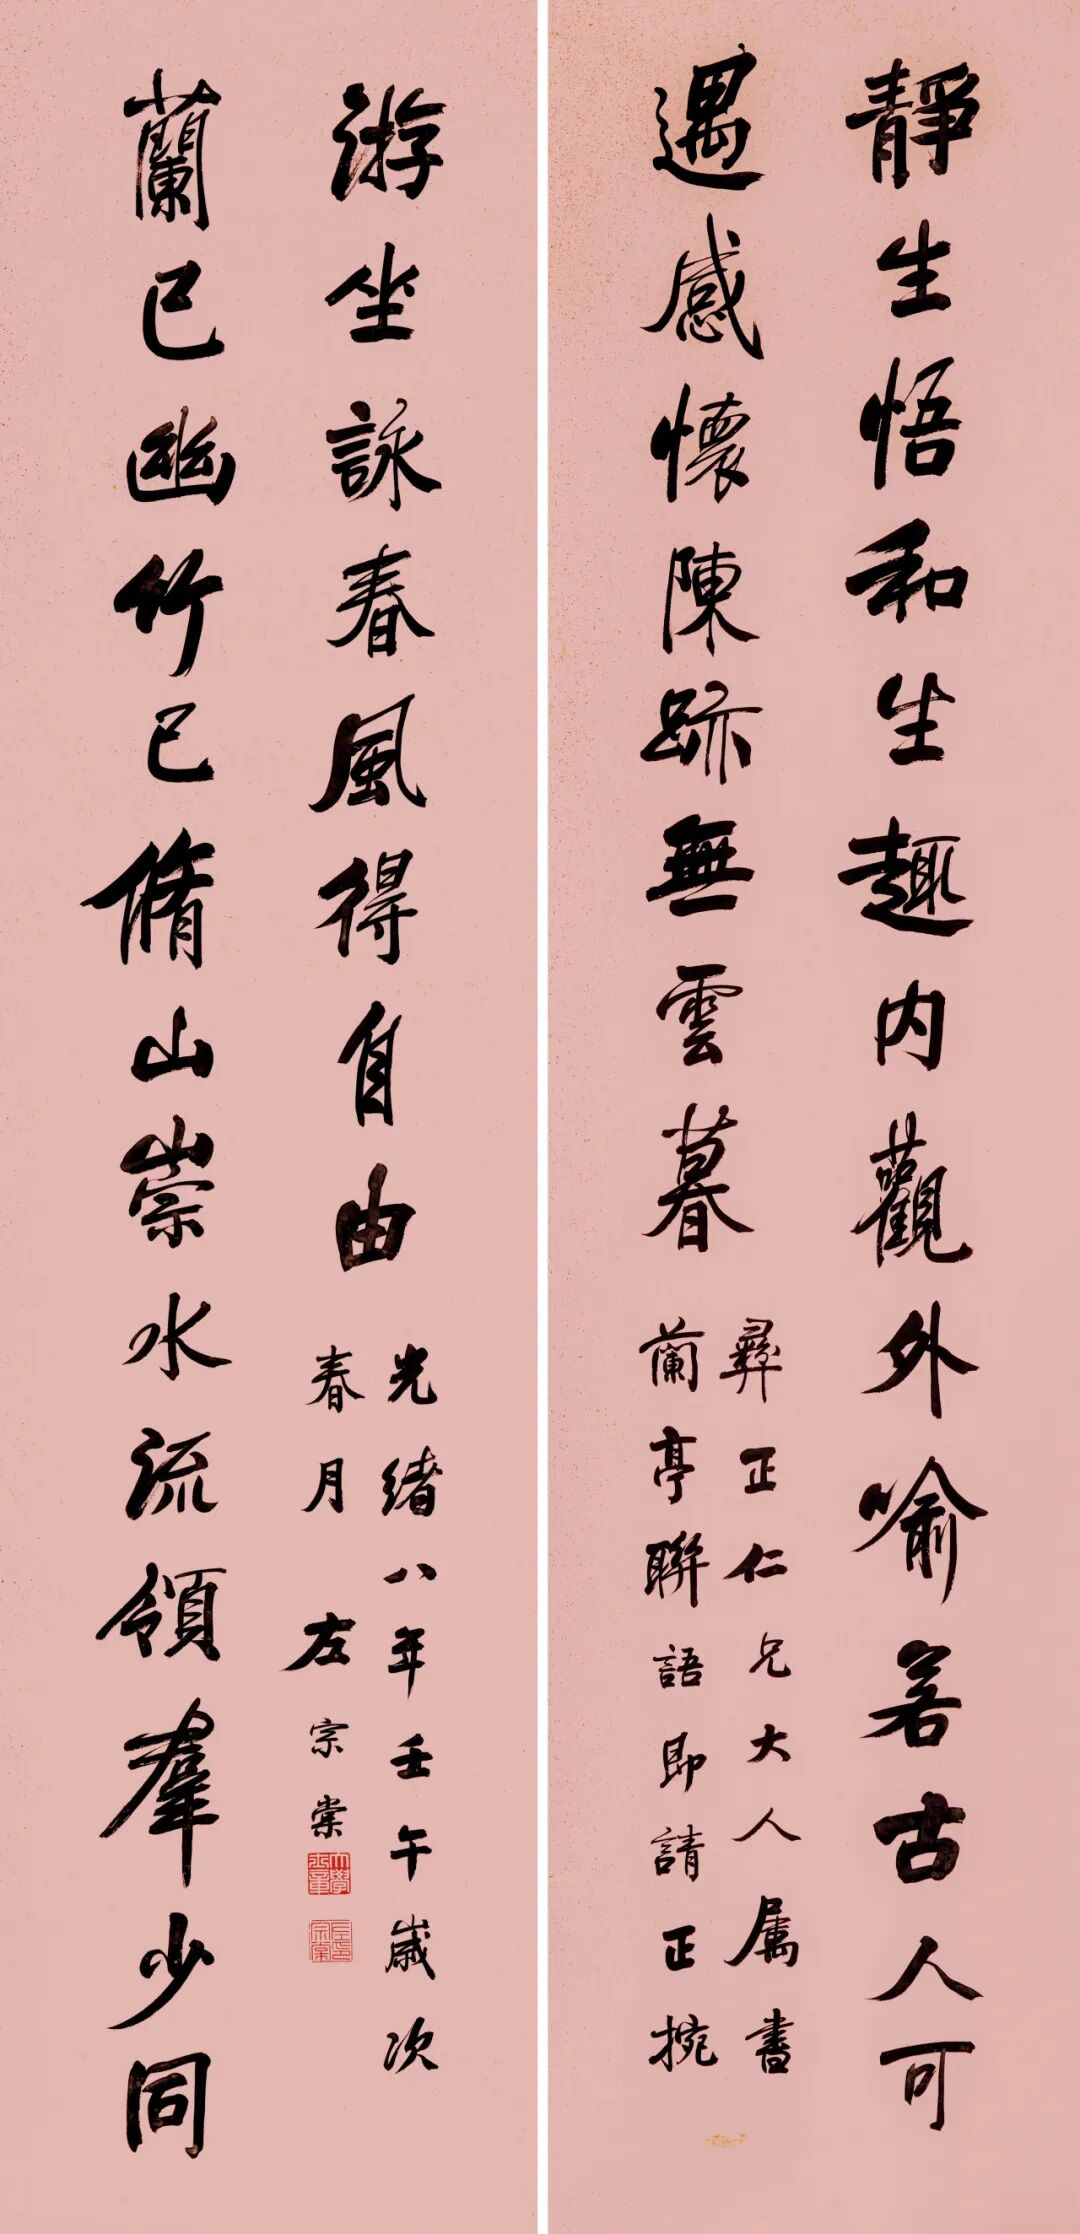 靜生悟和生趣内觀外喻若古人可
遇感懷陳跡無雲暮
彝正仁兄大人属書
蘭亭聯語即請正捥
蘭已幽竹已脩山崇水流領羣少同
游坐詠春風得自由
光緒八年壬午歲次
春月左宗棠
大學士章
左宗棠印